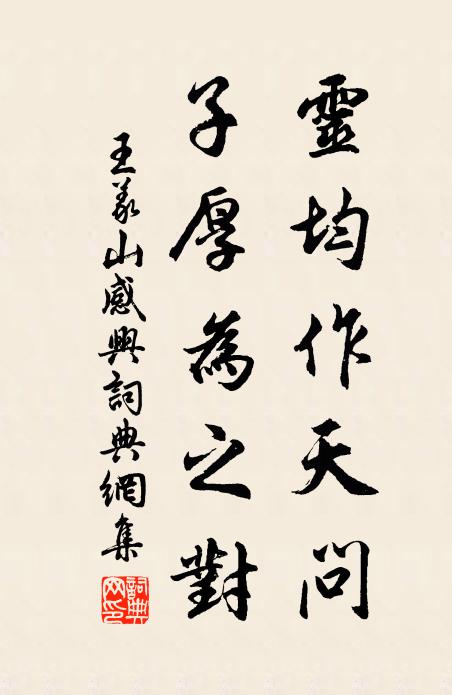 靈均作天問
子厚為之對
王義山感興詞典網集
詞典网印